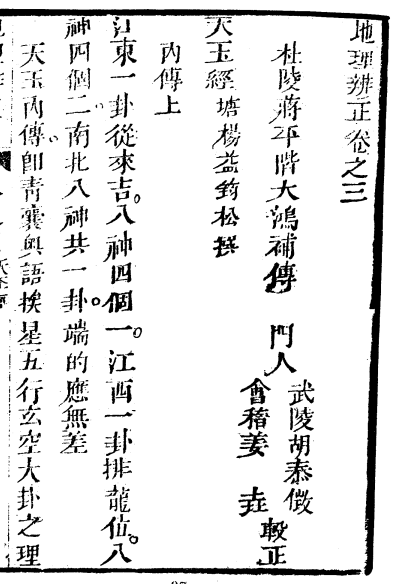 地理辨正卷之三
杜陵蔣平階大鴻補傳 門人 武陵胡泰徵
會稽姜垚 較正
天玉經 塘楊益筠松撰
內傳上
江東一卦從來吉。八神四個一。江西一卦排龍位。八
神四個二。南北八神共一卦。端的應無差
天玉內傳卽靑囊奧語挨星五行玄空大卦之理